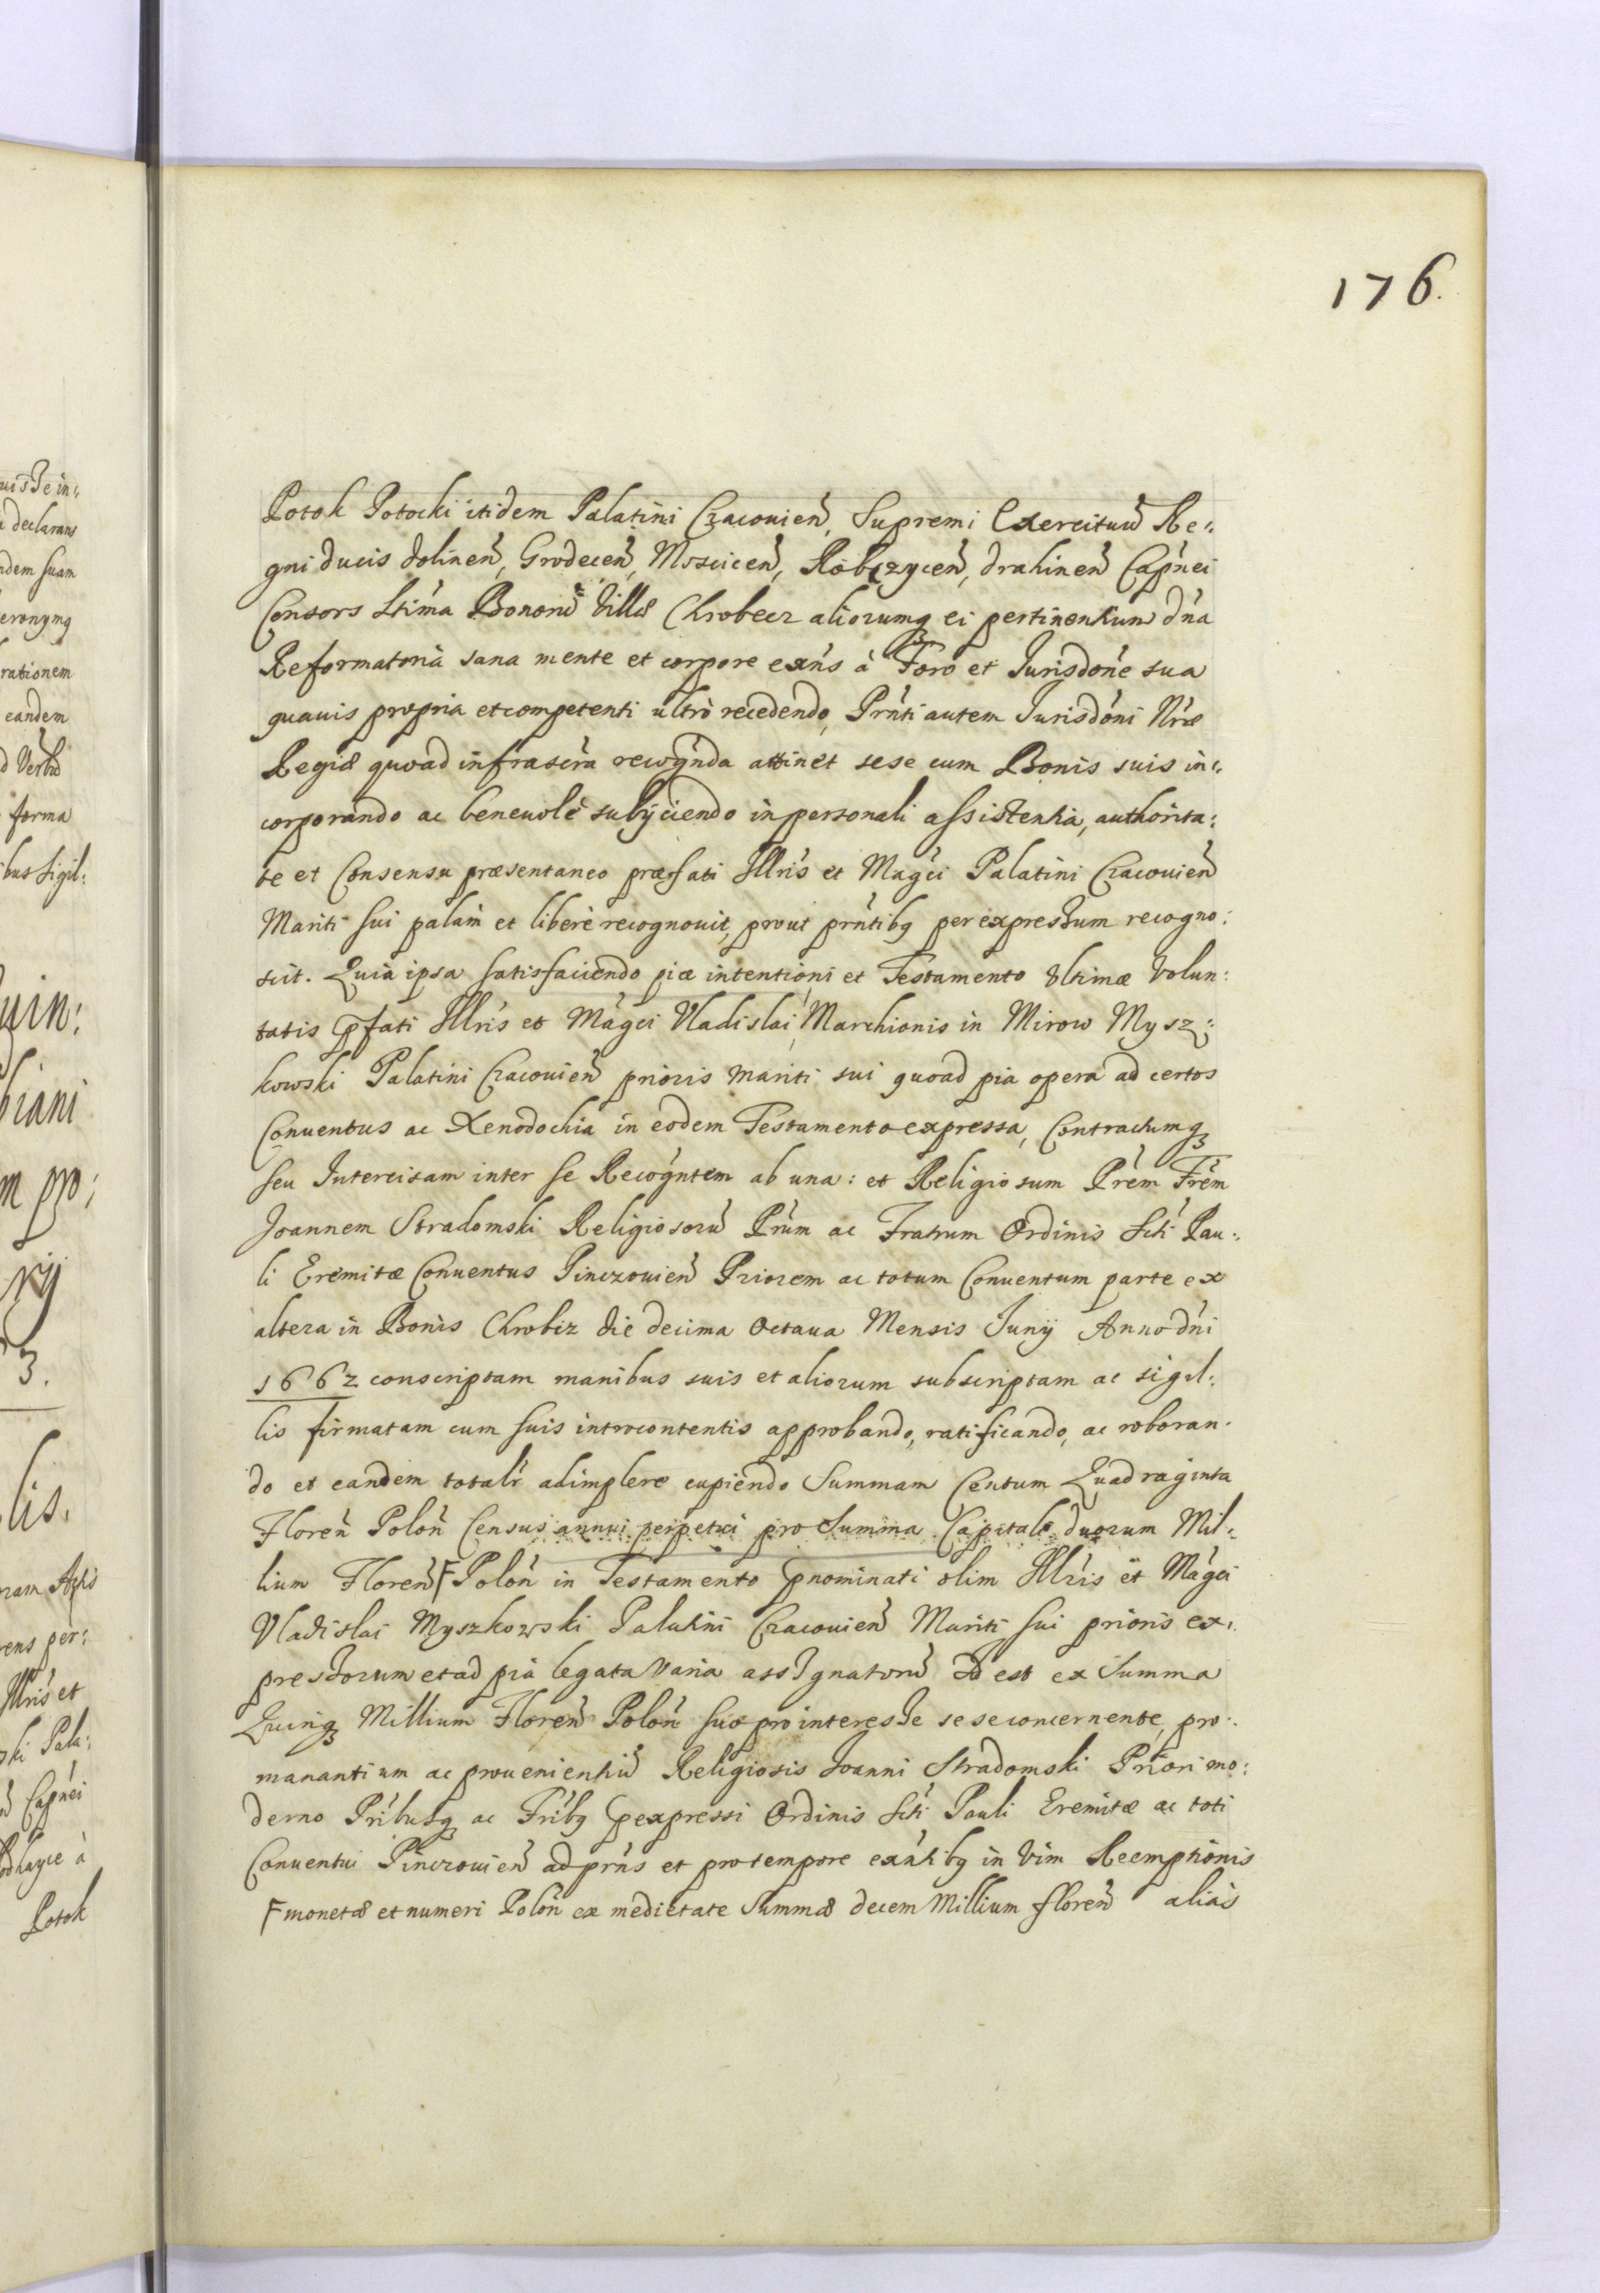 176.
Potok Potocki itidem Palatini Cracouień, Supremi Exercituū Re:
gni ducis dolineń, Grodeceń, Mosciceń, Robczyceń, drahineń Capnei
Consors Ltima Bonorū Villæ Chrobecz aliorumq ei pertinentium dna
Reformatoria sana mente et corpore exns à Foro et Jurisdone sua
quauis propria et competenti ultrò recedendo, Prnti autem Jurisdoni Nræ
Regiæ quoad infrascra recognda attinet sese cum Bonis suis in:
corporando ac beneuolè subÿciendo in personali assistentia, authorita:
te et Consensu præsentaneo præfati Illris et Magci Palatini Cracouień
Mariti sui palam et liberè recognouit, prout prntibq per expressum recogno:
scit. Quia ipsa satisfaciendo piæ intentioni et Testamento Vltimæ Volun:
tatis pfati Illris et Magci Vladislai Marchionis in Mirow Mysz:
kowski Palatini Cracouień prioris mariti sui quoad pia opera ad certos
Conuentus ac Xenodochia in eodem Testamento expressa, Contractumq
seu Intercisam inter se Recogntem ab una: et Religiosum Prem Frem
Joannem Stradomski Religiosorū Prum ac Fratrum Ordinis Scti Pau:
li Eremitæ Conuentus Pinczouień Priorem ac totum Conuentum parte ex
altera in Bonis Chrobiz die decima Octaua Mensis Junÿ Anno dni
1662 conscriptam manibus suis et aliorum subscriptam ac sigil:
lis firmatam cum suis introcontentis approbando, ratificando, ac roboran:
do et eandem totalr adimplere cupiendo Summam Centum Quadraginta
Floreń Poloń Census annui perpetui pro Summa Capitali duorum Mil:
lium Floreń F Poloń in Testamento pnominati olim Illris et Magci
Vladislai Myszkowski Palatini Cracouień Mariti sui prioris ex:
pressorum et ad pia legata Varia assignatorū Id est ex Summa
Quinq Millium Floreń Poloń suo pro interesse se se concernente, pro:
manantium ac prouenientiū Religiosis Joanni Stradomski Priori mo:
derno Pribusq ac Fribq pexpressi Ordinis Scti Pauli Eremitæ ac toti
Conuentui Pinczouień ad prns et pro tempore exntibq in Vim Reemptionis
F monetæ et numeri Poloń ex medietate Summæ decem Millium floreń alias